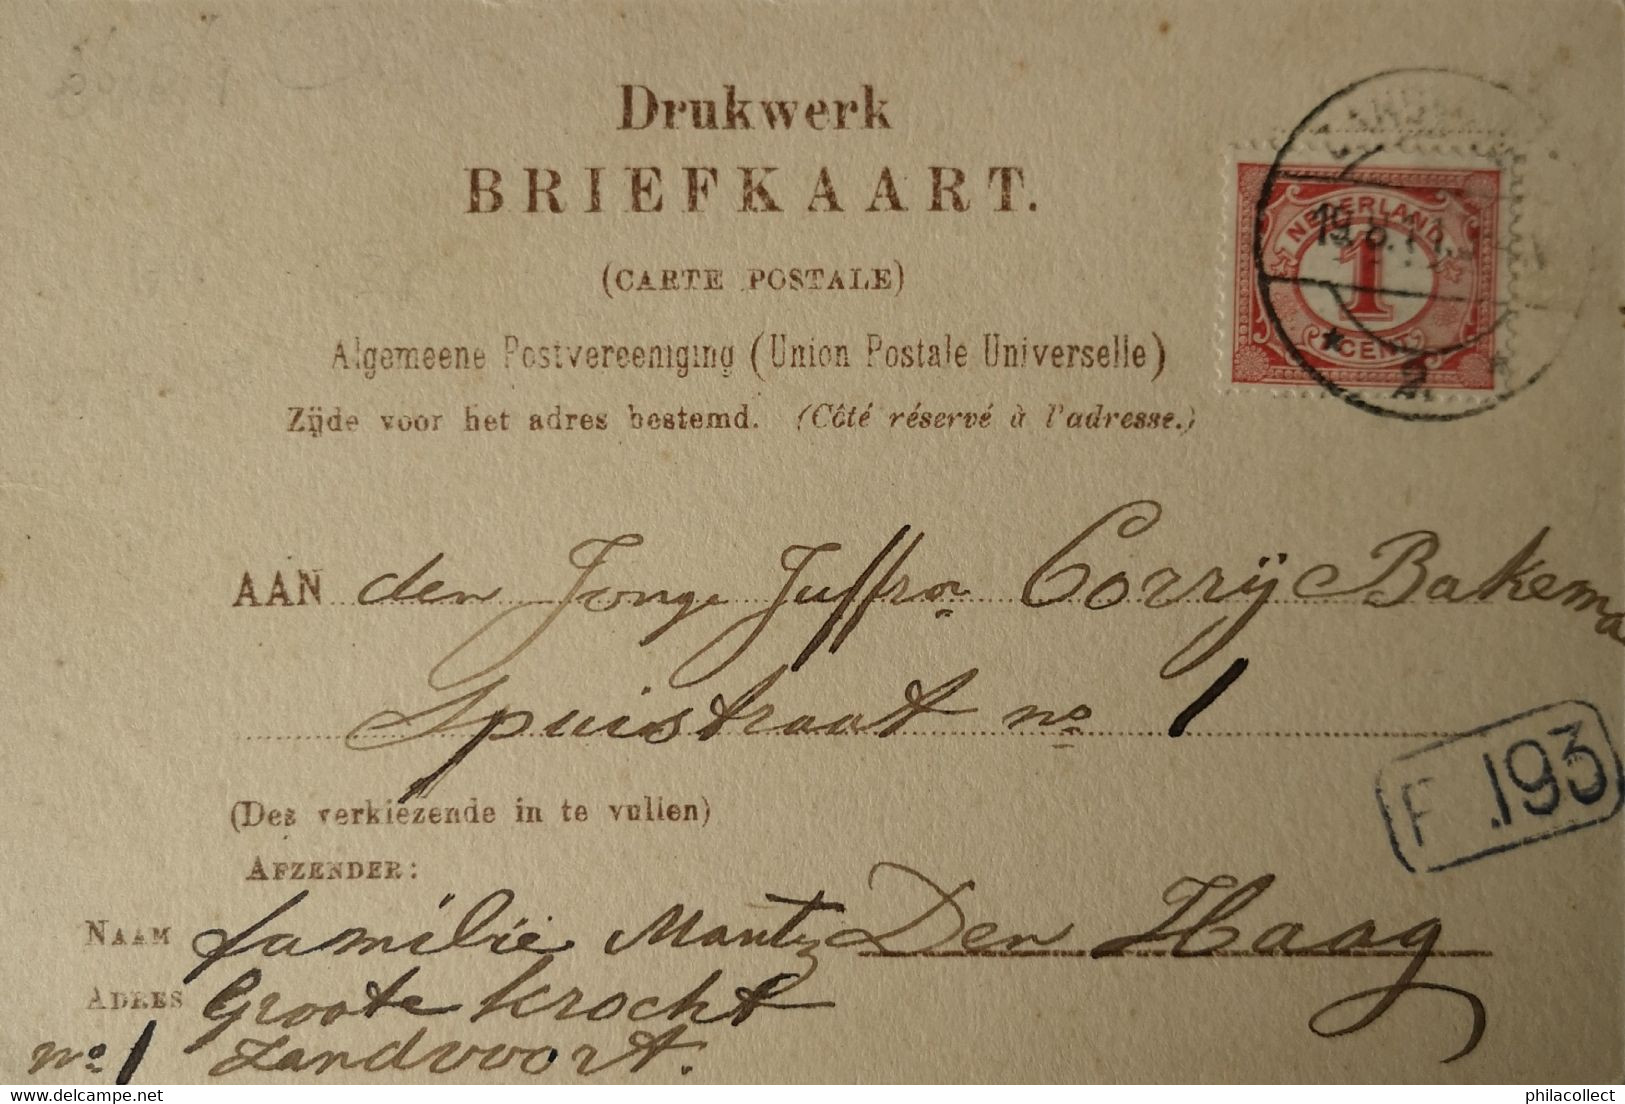 Drukwerk
BRIEFKAART.
(CARTE POSTALE)
Algemeene Postvereeniging (Union Postale Universelle)
Zijde voor het adres bestemd. (Côté réservé à l'adresse.)
NEDERLAND
1
CENT
19.8.11
2
AAN den Jonge Juffrn Corrij Bakema
Spuistraat no 1
F .193
(Des verkiezende in te vullen)
AFZENDER:
NAAM familie Mantz Den Haag
ADRES Groote Krocht
no 1 Zandvoort.
hippostcard.com
philacollect